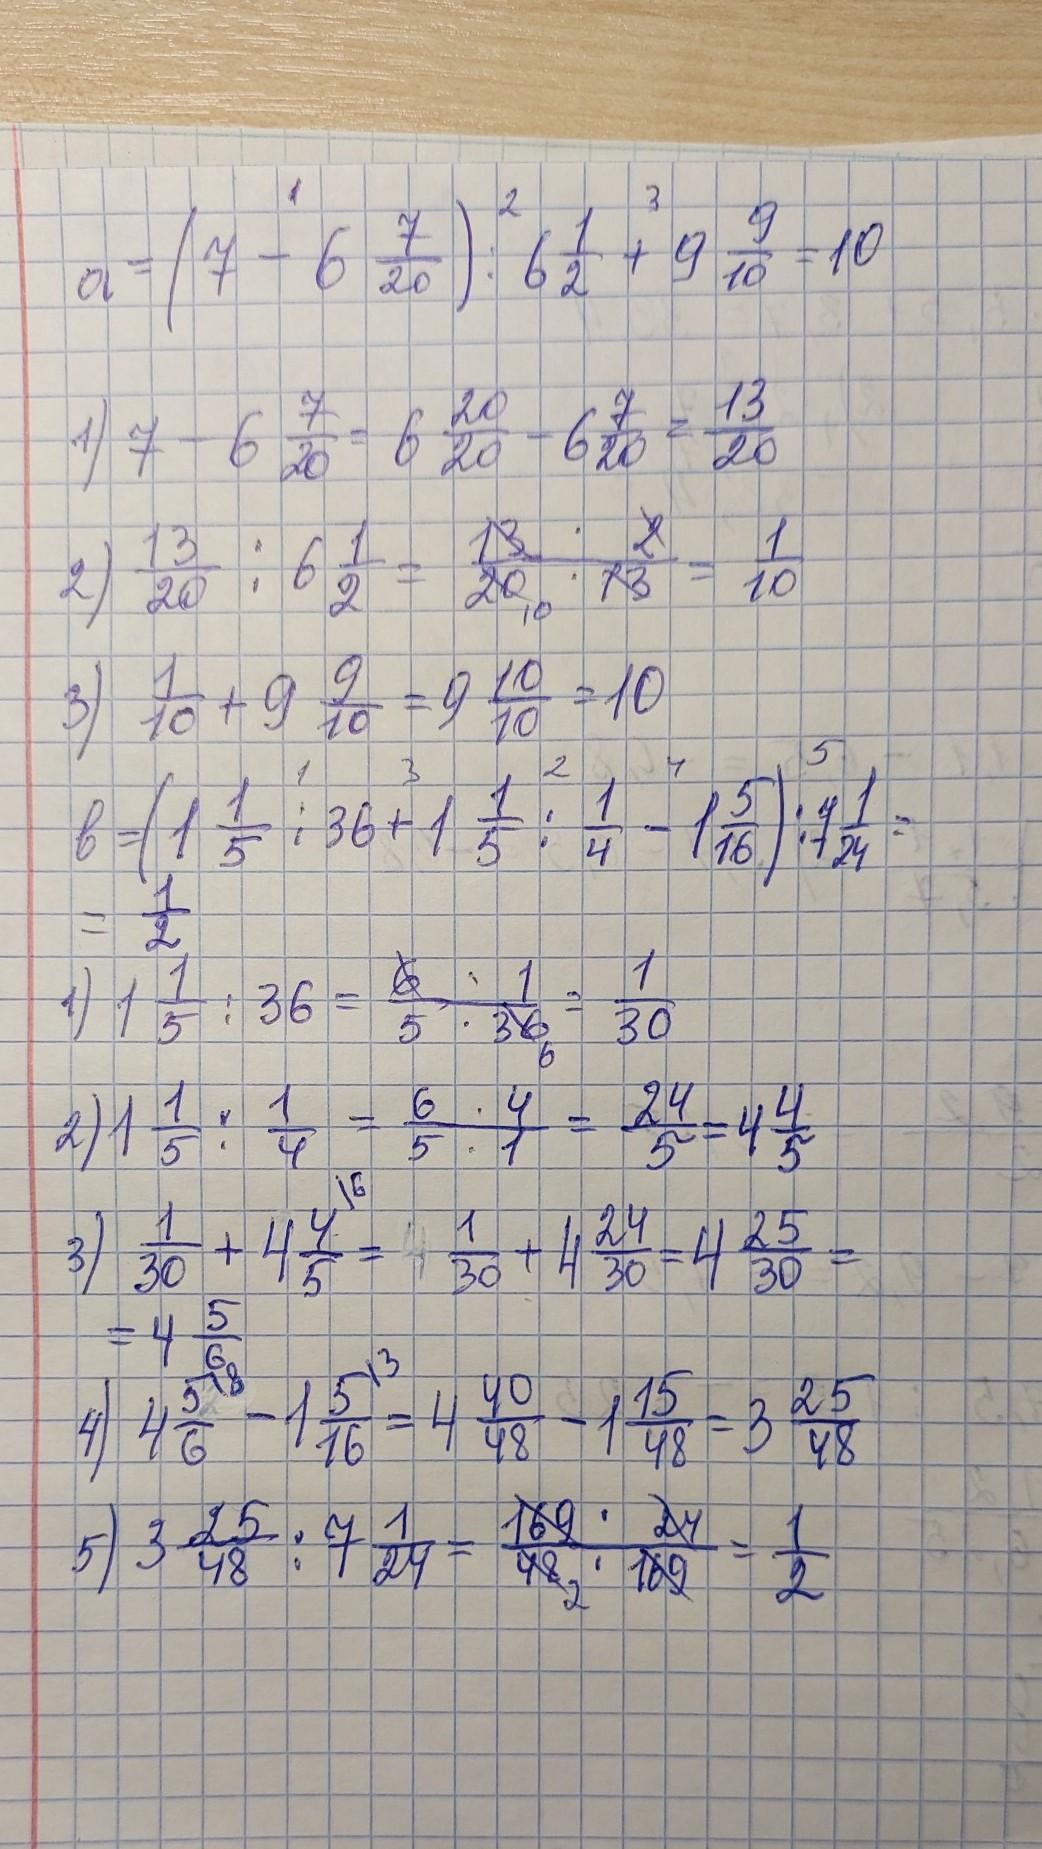 1 2 3
a = (7 - 6 7/20) : 6 1/2 + 9 9/10 = 10
1) 7 - 6 7/20 = 6 20/20 - 6 7/20 = 13/20
2) 13/20 : 6 1/2 = 13 · 2 / 20 · 13 = 1/10
10
3) 1/10 + 9 9/10 = 9 10/10 = 10
1 3 2 4 5
b = (1 1/5 : 36 + 1 1/5 : 1/4 - 1 5/16) : 7 1/24 =
= 1/2
1) 1 1/5 : 36 = 6 · 1 / 5 · 36 = 1/30
6
2) 1 1/5 : 1/4 = 6 · 4 / 5 · 1 = 24/5 = 4 4/5
3) 1/30 + 4 4/5 \6 = 1/30 + 4 24/30 = 4 25/30 =
= 4 5/6
4) 4 5/6 \8 - 1 5/16 \3 = 4 40/48 - 1 15/48 = 3 25/48
5) 3 25/48 : 7 1/24 = 169 · 24 / 48 · 169 = 1/2
2